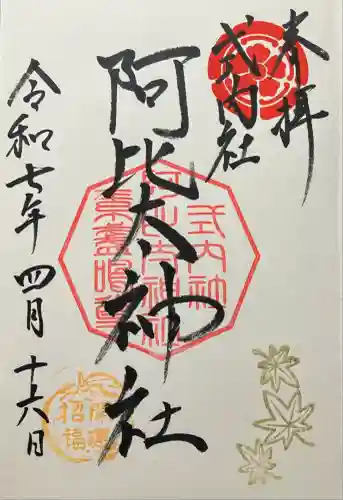 奉拝
式内社
阿比太神社
令和七年 四月 十六日
式内社
招福